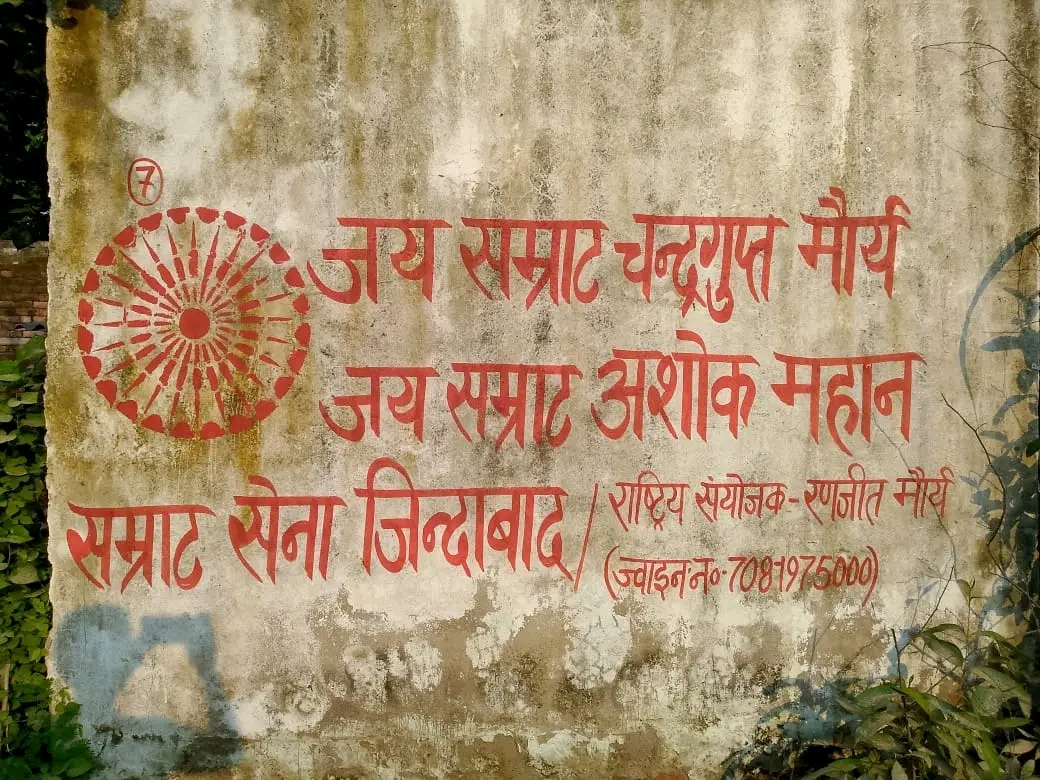 7
जय सम्राट चन्द्रगुप्त मौर्य
जय सम्राट अशोक महान
सम्राट सेना जिन्दाबाद / राष्ट्रिय संयोजक - रणजीत मौर्य
(ज्वाइन नं० 7081975000)